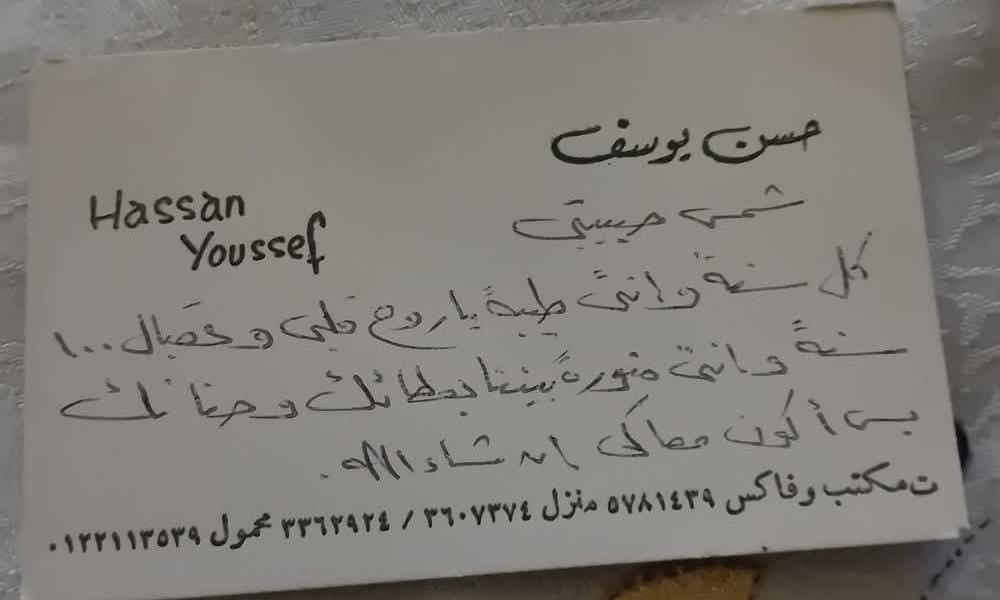 حسن يوسف
Hassan
Youssef
شمس حبيبتي
كل سنة وانتى طيبة يا روح قلبى وعقبال ١٠٠
سنة وانتى منورة بيننا بعطائك وحنانك
بس أكون معاكى إن شاء الله .
ت مكتب وفاكس ٥٧٨١٤٣٩ منزل ٣٦٠٧٣٧٤ / ٣٣٦٢٩٢٤ محمول ٠١٢٢١١٣٥٣٩